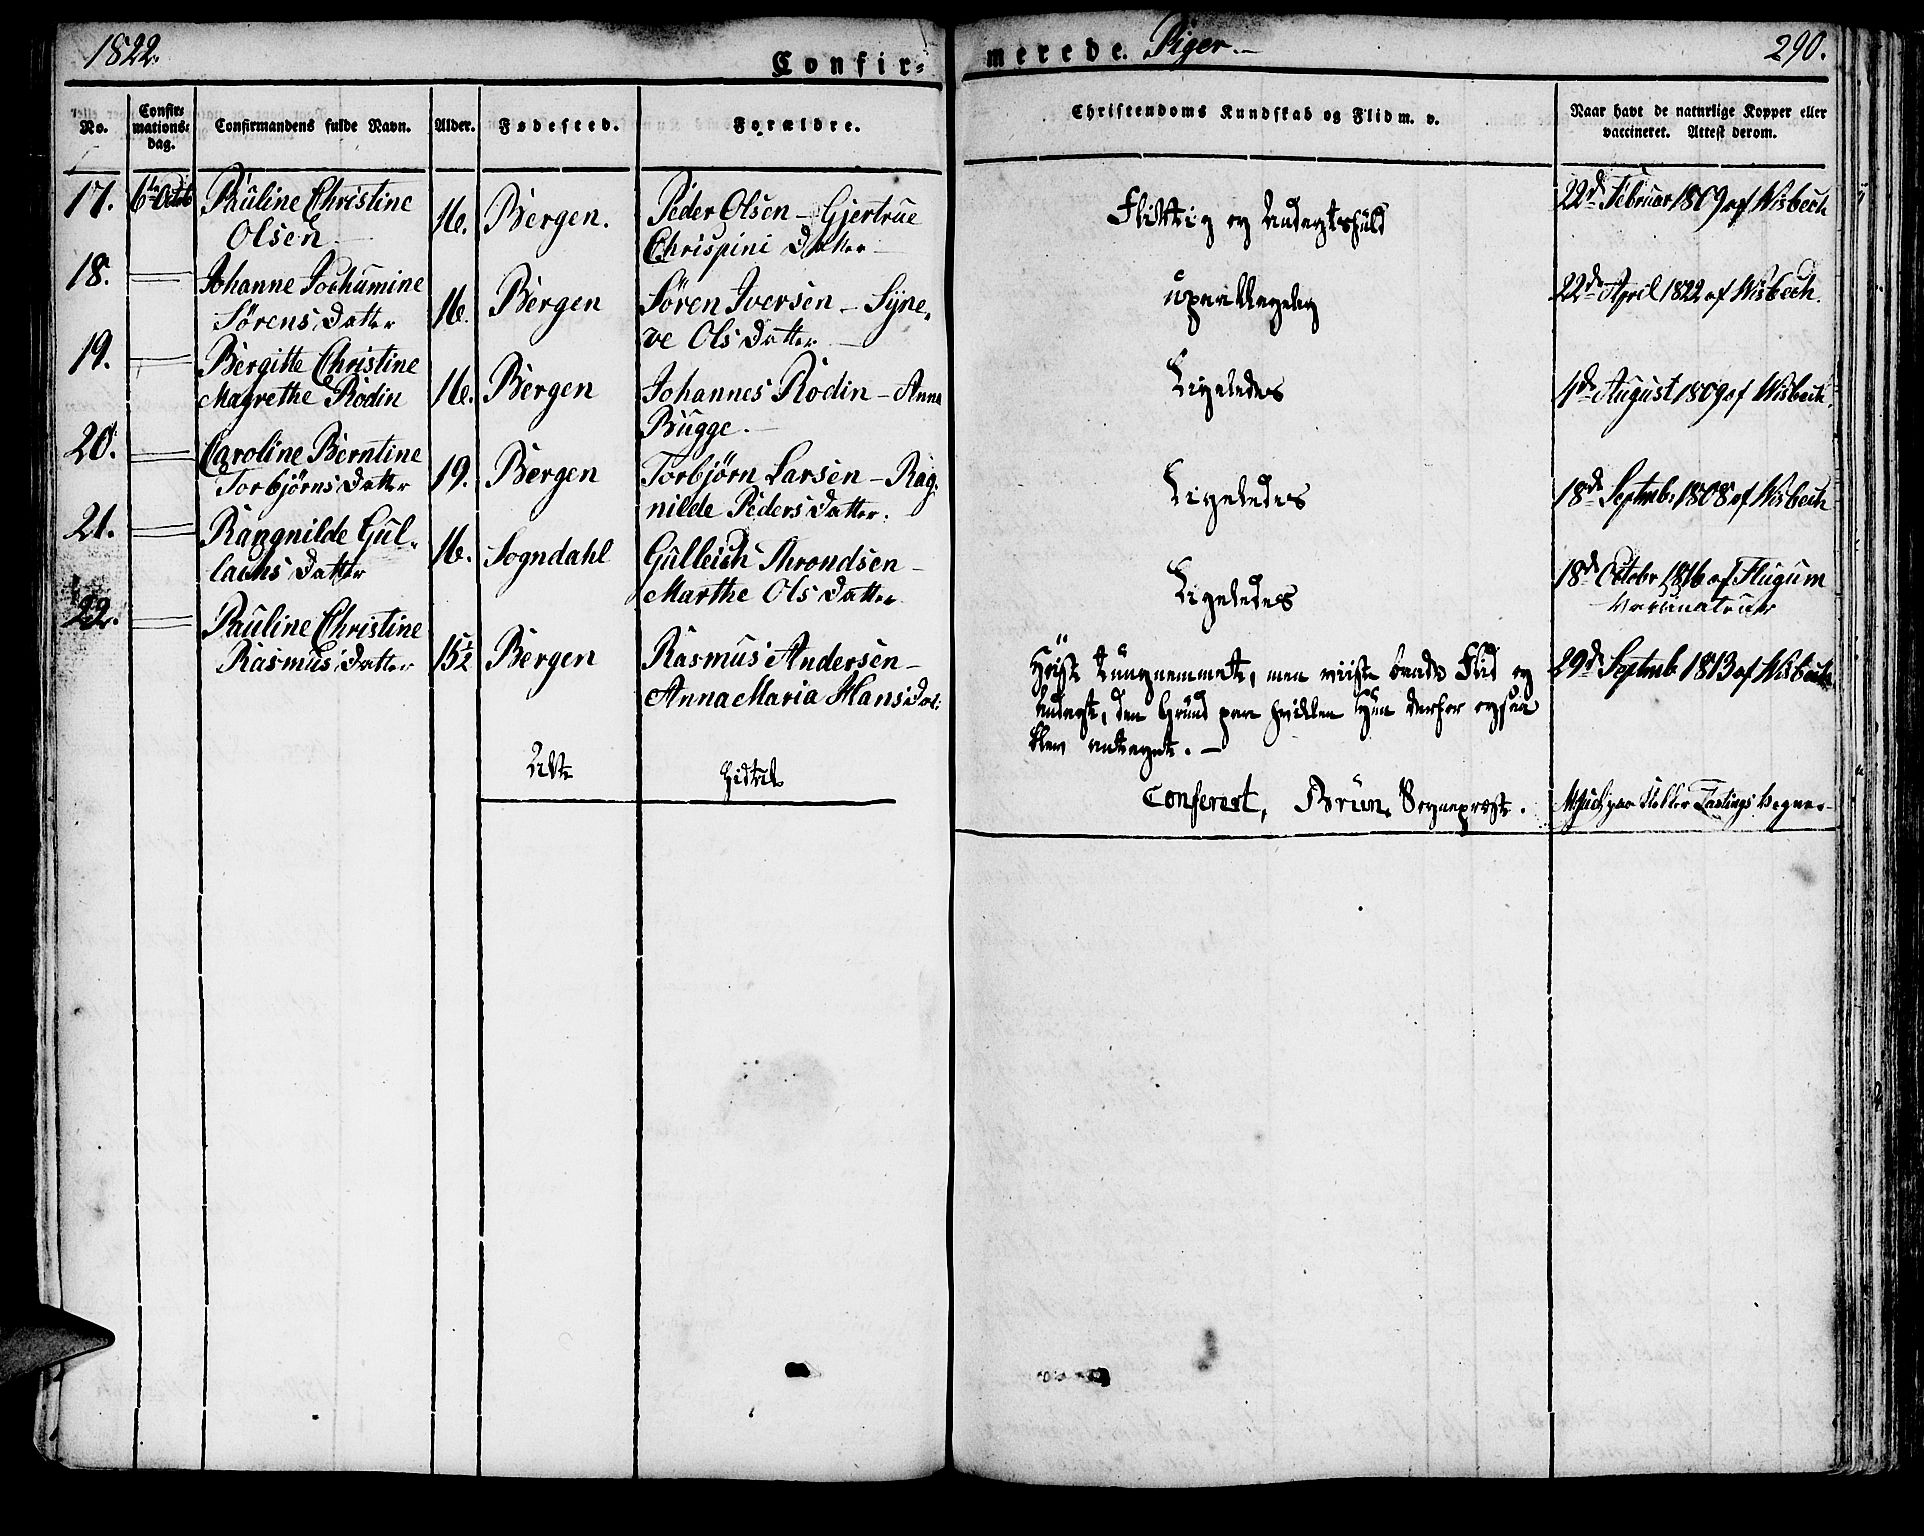 1822.
Confir=
merede. Piger.
290.
No.
Confir=
mations=
dag.
Confirmandens fulde Navn.
Alder.
Fødested.
Forældre.
Christendoms Kundskab og Flid m. v.
Naar havt de naturlige Kopper eller
vaccineret. Attest derom.
17. 6te Octob Pauline Christine
Olsen 16. Bergen. Peder Olsen - Gjertrue
Chrispini Datter
Flittig og Andagtsfuld
22de Februar 1809 af Wisbech
18. Johanne Jochumine
Sørens Datter 16. Bergen Søren Iversen - Syne,
ve Ols Datter
upaaklagelig
22de April 1822 af Wisbech.
19. Bergitte Christine
Magrethe Rodin 16. Bergen Johannes Rodin - Anna
Bugge.
Ligeledes
4de August 1809 af Wisbech.
20. Caroline Berntine
Torbjørns Datter 19. Bergen Torbjørn Larsen - Rag,
nilde Peders Datter.
Ligeledes
18de Septmb: 1808 af Wisbech
21. Rangnilde Gul,
lachs Datter 16. Sogndahl Gulleich Throndsen -
Marthe Ols Datter
Ligeledes
18de Octobr 1816 af Flugum
Vaccinateur
22. Pauline Christine
Rasmus Datter 15½ Bergen Rasmus Andersen -
Anna Maria Hans Dat:
Høist tungnemmet, men viiste baade Flid og
Andagt, den Grund paa hvilken hun derfor ogsaa
blev antaget. -
29de Septmb 1813 af Wisbech
Conferert, Brun Sognepræst.